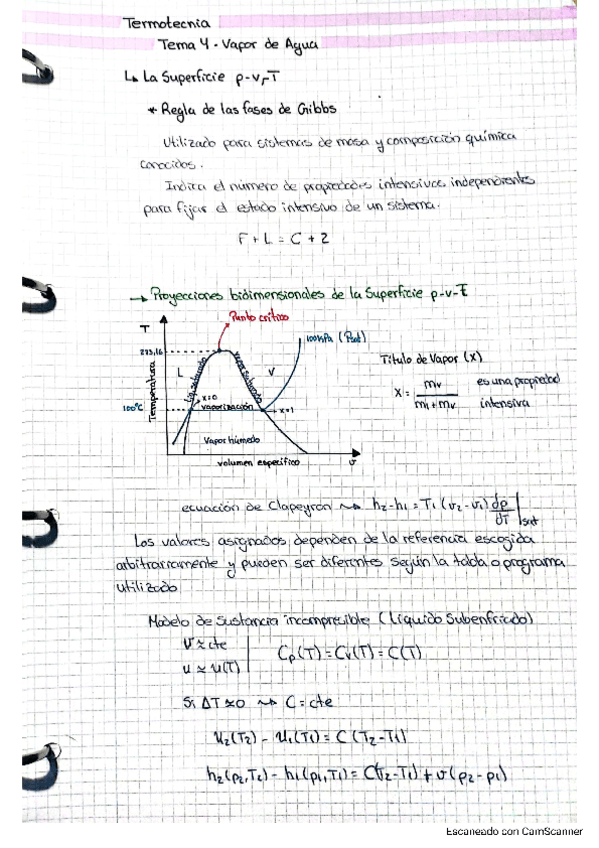 Termotecnia
Tema 4 - Vapor de Agua
↳ La Superficie p-v-T
* Regla de las fases de Gibbs
Utilizado para sistemas de masa y composición química
conocidos.
Indica el número de propiedades intensivas independientes
para fijar el estado intensivo de un sistema.
F + L = C + 2
→ Proyecciones bidimensionales de la Superficie p-v-T
Punto crítico
T
100 kPa (Psat)
273,16
L
V
Título de Vapor (x)
x = mv / ml + mv
es una propiedad
intensiva
Temperatura
x=0
100°C
vaporización
x=1
Vapor húmedo
volumen específico
v
ecuación de Clapeyron ⇝ h2-h1 = T1 (v2-v1) dp/dT |sat
Los valores asignados dependen de la referencia escogida
arbitrariamente y pueden ser diferentes según la tabla o programa
utilizado
Modelo de Sustancia incompresible (Líquido Subenfriado)
v ≈ cte
u ≈ u(T)
Cp(T) = Cv(T) = C(T)
Si ΔT ≈ 0 ⇝ C = cte
u2(T2) - u1(T1) = C (T2-T1)
h2(p2,T2) - h1(p1,T1) = C(T2-T1) + v(p2-p1)
Escaneado con CamScanner